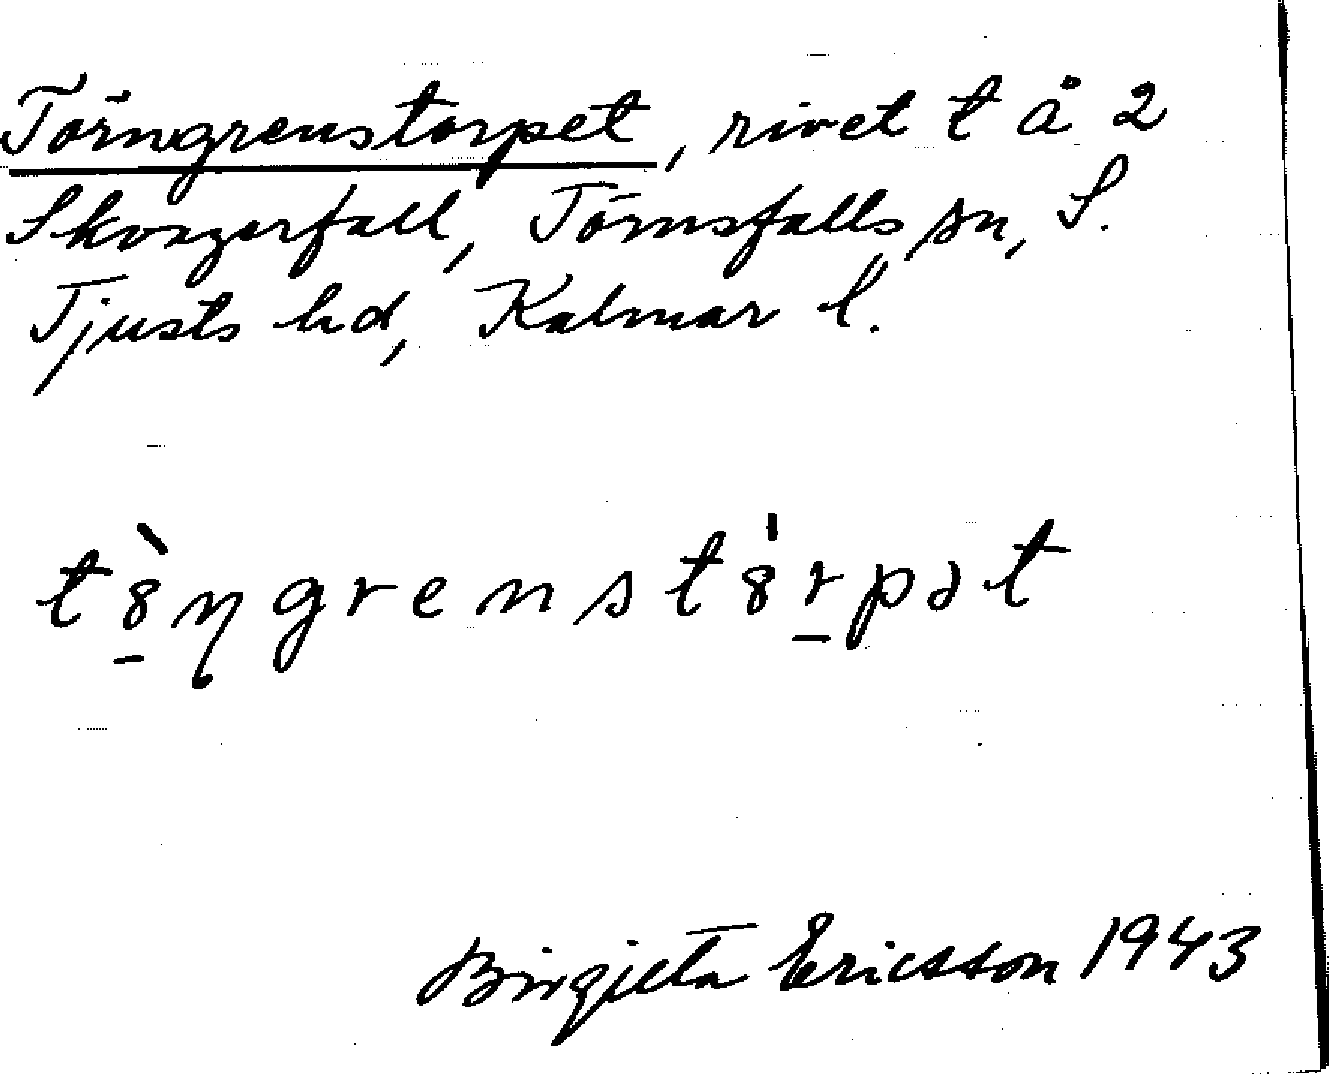 Törngrenstorpet, rivet t å 2
Skvagerfall, Törnsfalls sn, S.
Tjusts hd, Kalmar l.
tö̀ŋgrenstö'rpət
Birgitta Ericsson 1943